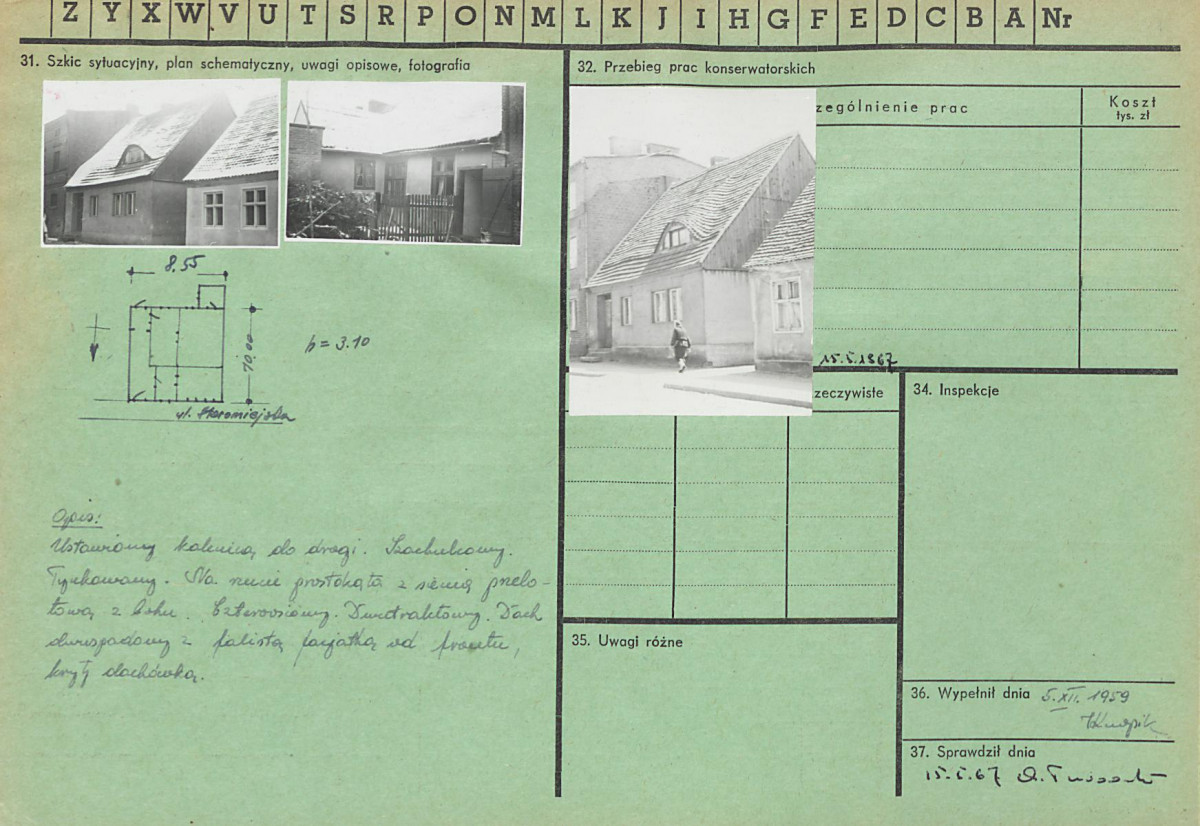 Z Y X W V U T S R P O N M L K J I H G F E D C B A Nr
31. Szkic sytuacyjny, plan schematyczny, uwagi opisowe, fotografia
8.55
10.00
h = 3.10
ul. Staromiejska
Opis:
Ustawiony kalenicą do drogi. Szachulcowy.
Tynkowany. Na rzucie prostokąta z sienią przelo-
tową z boku. Czteroosiowy. Dwutraktowy. Dach
dwuspadowy z falistą facjatką od frontu,
kryty dachówką.
32. Przebieg prac konserwatorskich
zególnienie prac
Koszt
tys. zł
15.5.1967
zeczywiste
34. Inspekcje
35. Uwagi różne
36. Wypełnił dnia 5.XII. 1959
37. Sprawdził dnia
15.5.67